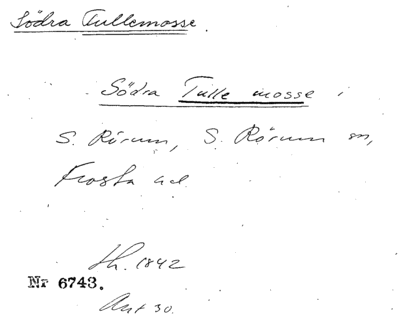 Södra Tullemosse.
Södra Tulle mosse i
S. Rörum, S. Rörum sn,
Frosta hd.
Lh. 1842
Nr 6743.
Ant 30.